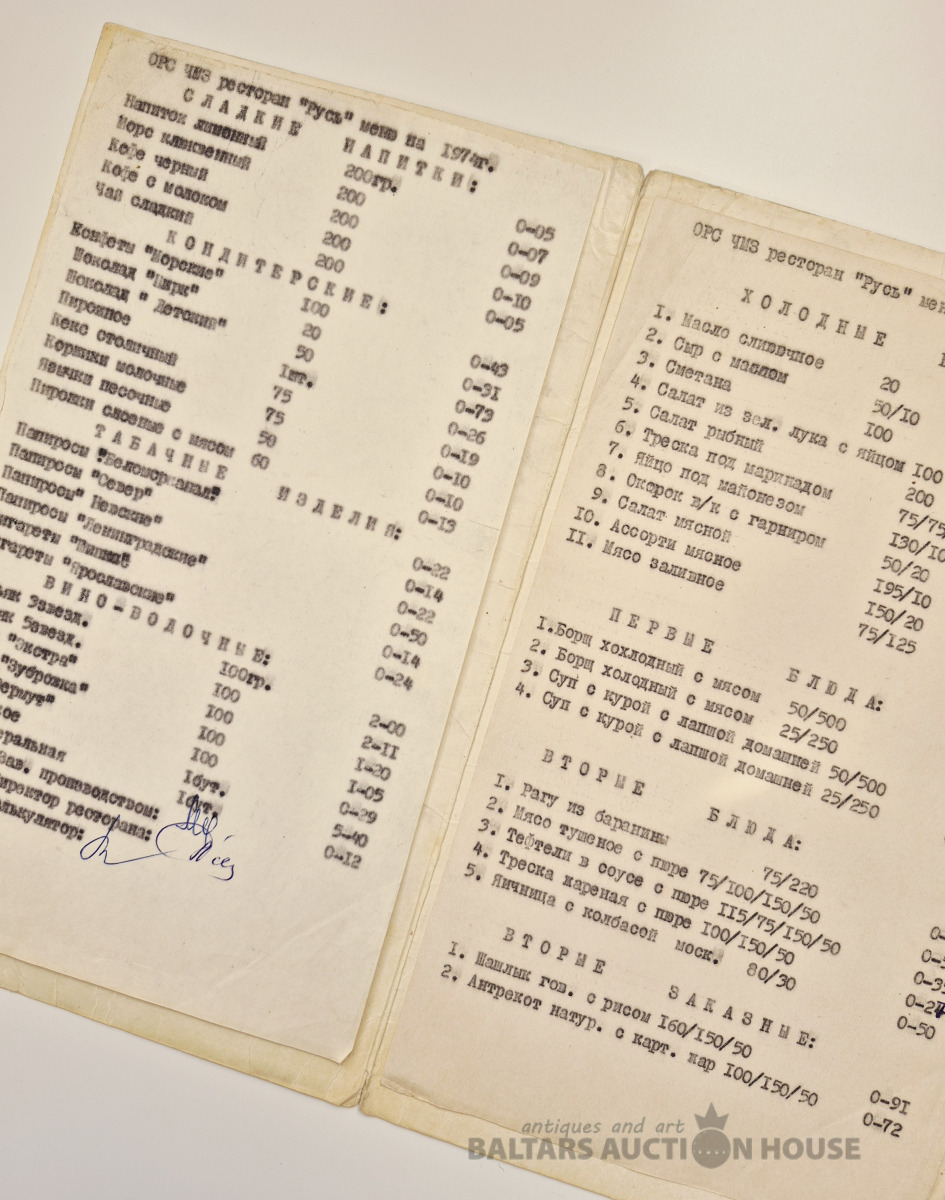 ОРС ЧМЗ ресторан "Русь" меню на 1974г.
СЛАДКИЕ НАПИТКИ:
Напиток лимонный 200гр. 0-05
Морс клюквенный 200 0-07
Кофе черный 200 0-09
Кофе с молоком 200 0-I0
Чай сладкий 200 0-05
КОНДИТЕРСКИЕ:
Конфеты "Морские" I00 0-43
Шоколад "Цирк" 20 0-3I
Шоколад " Детский" 50 0-73
Пирожное Iшт. 0-26
Кекс столичный 75 0-I9
Коржики молочные 75 0-I0
Язычки песочные 50 0-I0
Пирожки слоеные с мясом 60 0-I3
ТАБАЧНЫЕ ИЗДЕЛИЯ:
Папиросы "Беломорканал" 0-22
Папиросы "Север" 0-I4
Папиросы" Невские" 0-22
Папиросы "Ленинградские" 0-50
игареты 0-I4
гареты "Ярославские" 0-24
ВИНО-ВОДОЧНЫЕ:
ьяк 3звезд. I00гр. 2-00
як 5звезд. I00 2-II
"Экстра" I00 I-20
"Зубровка" I00 I-05
ермут" I00 0-29
ое Iбут. 5-40
еральная Iбут. 0-I2
Зав. производством:
иректор ресторана:
лькулятор:
ОРС ЧМЗ ресторан "Русь" мен
ХОЛОДНЫЕ
I. Масло сливочное 20
2. Сыр с маслом 50/I0
3. Сметана I00
4. Салат из зел. лука с яйцом I00
5. Салат рыбный 200
6. Треска под маринадом 75/75
7. Яйцо под майонезом I30/I0
8. Окорок в/к с гарниром 50/20
9. Салат мясной I95/I0
I0. Ассорти мясное I50/20
II. Мясо заливное 75/I25
ПЕРВЫЕ БЛЮДА:
I.Борщ хохлодный с мясом 50/500
2. Борщ холодный с мясом 25/250
3. Суп с курой с лапшой домашней 50/500
4. Суп с курой с лапшой домашней 25/250
ВТОРЫЕ БЛЮДА:
I. Рагу из баранины 75/220
2. Мясо тушеное с пюре 75/I00/I50/50
3. Тефтели в соусе с пюре II5/75/I50/50
4. Треска жареная с пюре I00/I50/50
5. Яичница с колбасой моск. 80/30 0-50
ВТОРЫЕ ЗАКАЗНЫЕ:
I. Шашлык гов. с рисом I60/I50/50 0-9I
2. Антрекот натур. с карт. жар I00/I50/50 0-72
antiques and art
BALTARS AUCTION HOUSE